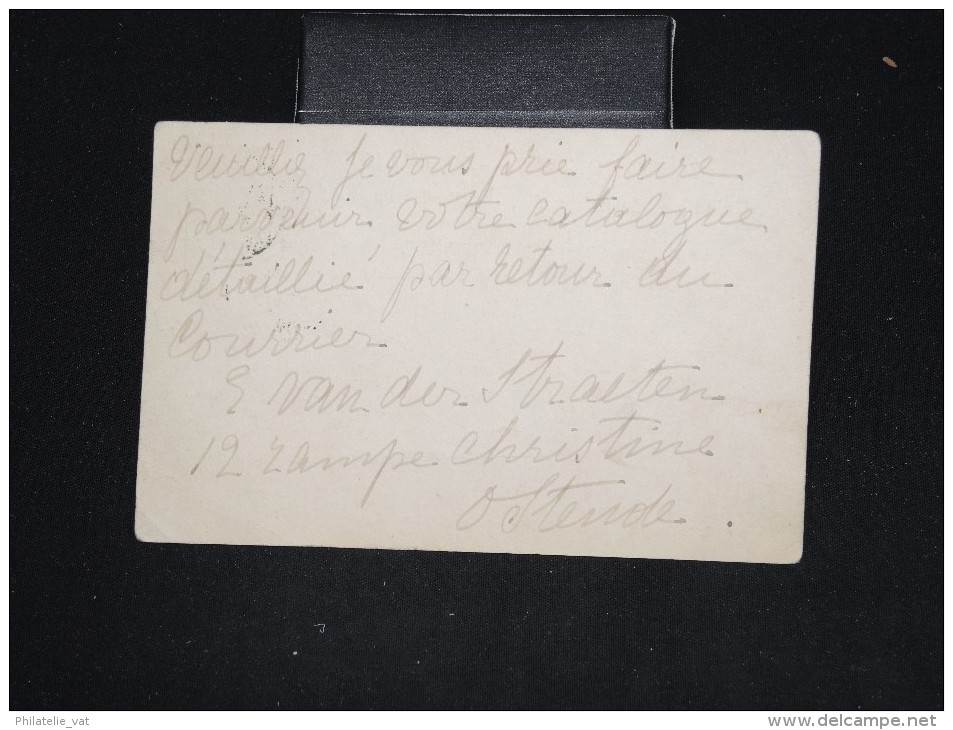 Veuillez Je vous prie faire
parvenir votre catalogue
détaillié par retour du
Courrier
E van der Straeten
12 rampe Christine
Ostende.
Philatelie_vat
www.delcampe.net